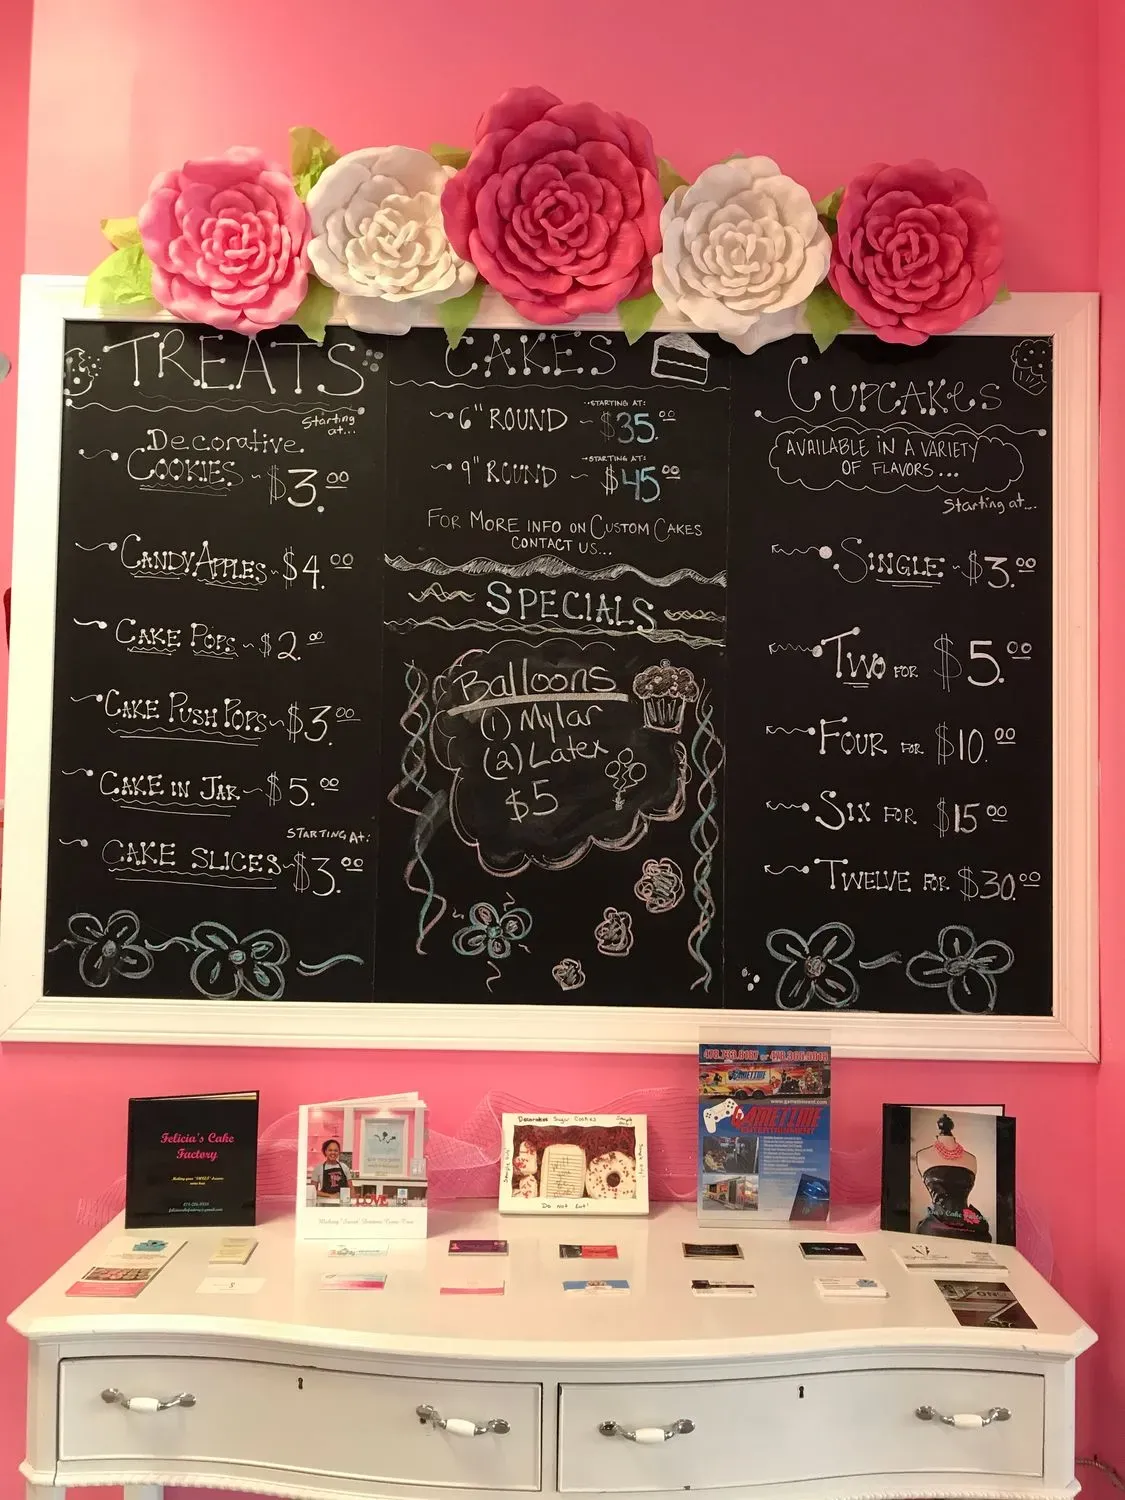 TREATS
Starting at...
Decorative
COOKIES ~ $3.00
CANDY APPLES ~ $4.00
CAKE POPS ~ $2.00
CAKE PUSH POPS ~ $3.00
CAKE IN JAR ~ $5.00
STARTING AT:
CAKE SLICES ~ $3.00
CAKES
STARTING AT:
6" ROUND ~ $35.00
STARTING AT:
9" ROUND ~ $45.00
FOR MORE INFO ON CUSTOM CAKES
CONTACT US...
SPECIALS
Balloons
(1) Mylar
(2) Latex
$5
CUPCAKES
AVAILABLE IN A VARIETY
OF FLAVORS...
Starting at...
SINGLE ~ $3.00
TWO FOR $5.00
FOUR FOR $10.00
SIX FOR $15.00
TWELVE FOR $30.00
Felicia's Cake
Factory
LOVE
Making "Sweet" Dreams Come True
Decorated Sugar Cookies
Do Not Eat!
GAMETIME
www.gametimeent.com
GAMETIME
ENTERTAINMENT